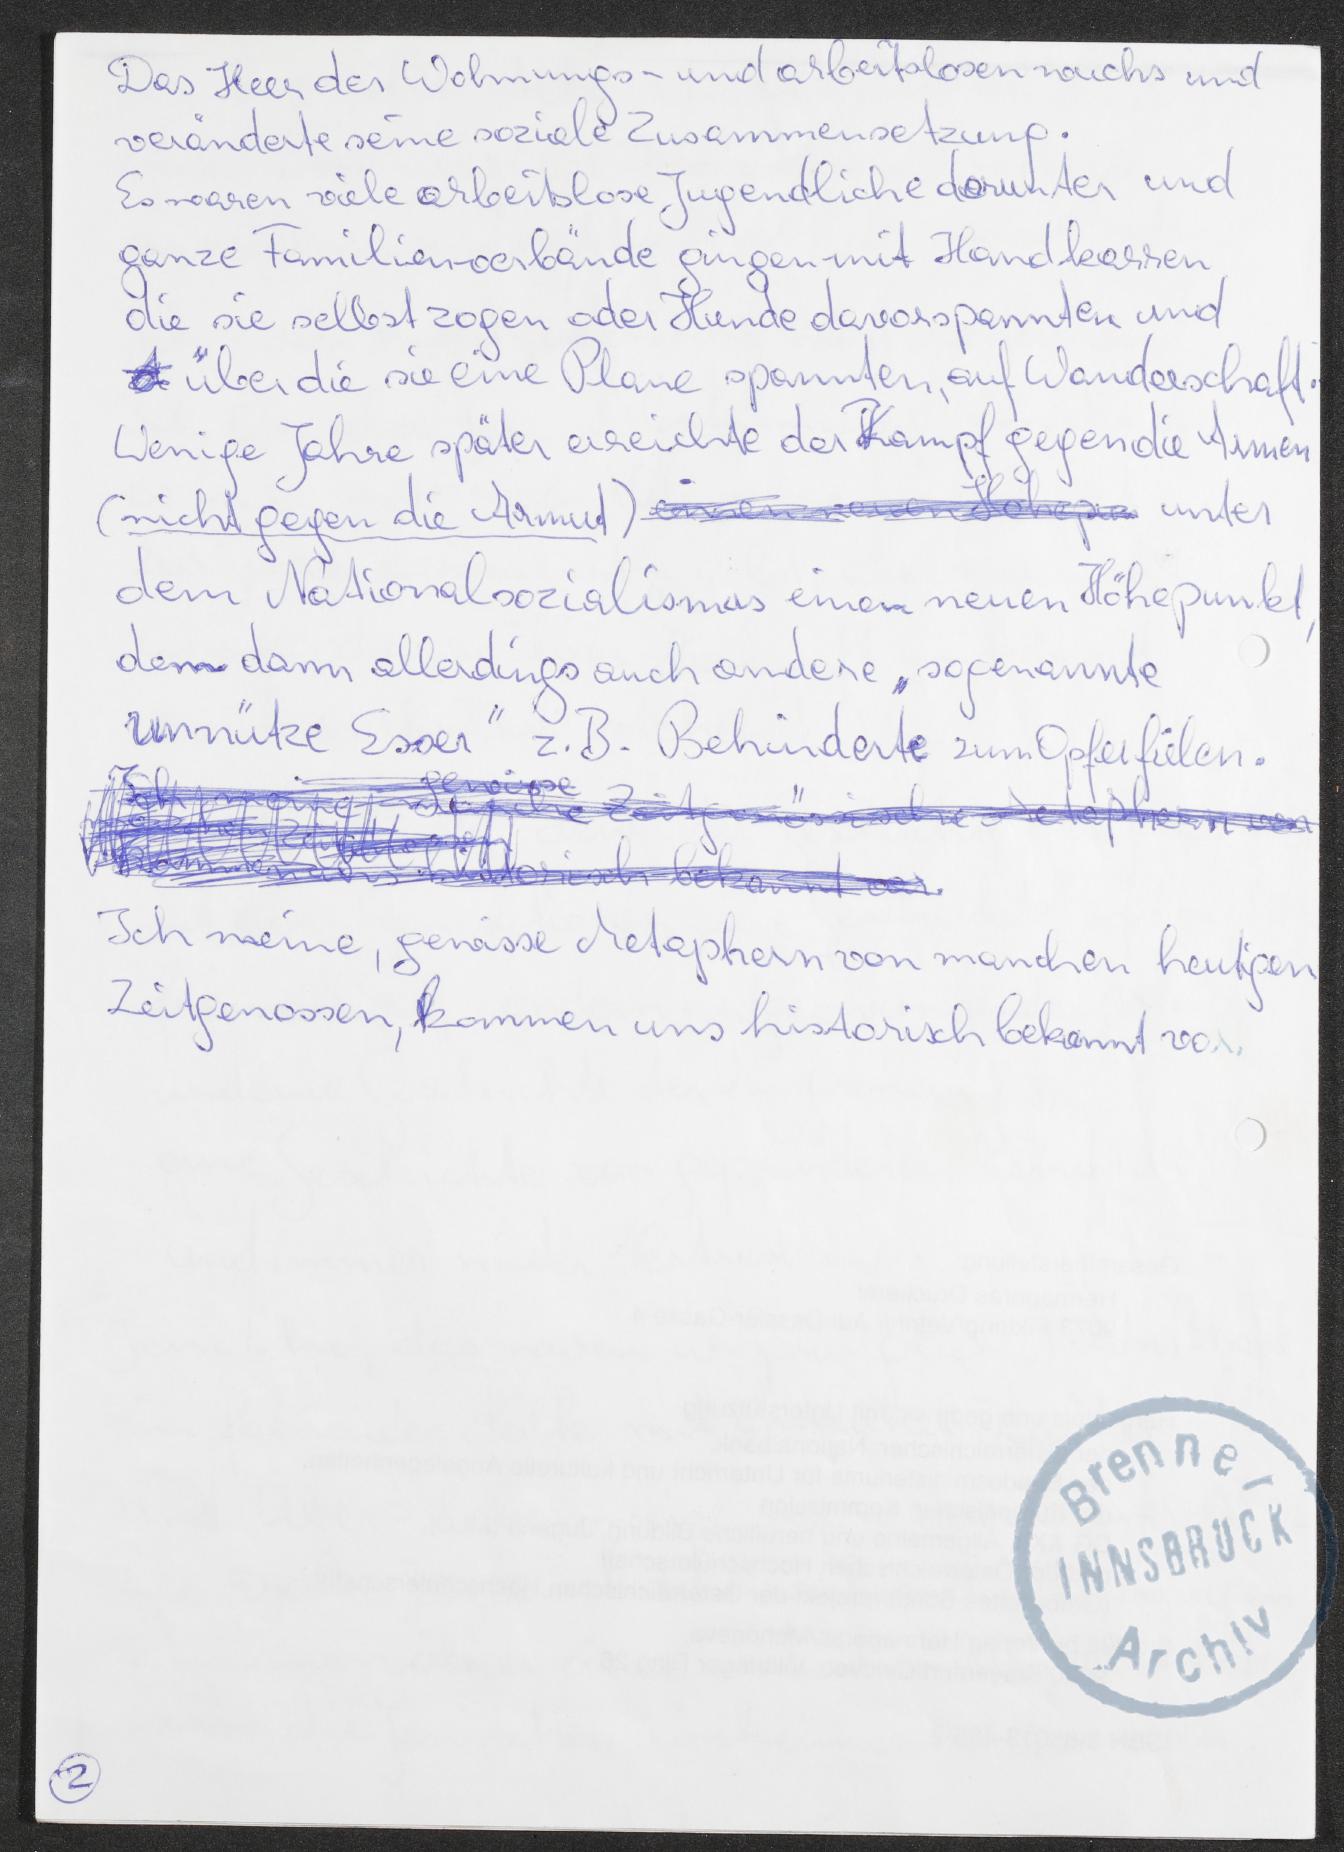 Das Heer der Wohnungs- und arbeitslosen wuchs und
veränderte seine soziale Zusammensetzung.
Es waren viele arbeitslose Jugendliche darunter und
ganze Familienverbände gingen mit Handkarren
die sie selbst zogen oder Hunde davorspannten und
über die sie eine Plane spannten, auf Wanderschaft.
Wenige Jahre später erreichte der Kampf gegen die Armen
(nicht gegen die Armut) einen neuen Höhepu unter
dem Nationalsozialismus einen neuen Höhepunkt,
dem dann allerdings auch andere „sogenannte
unnütze Esser" z.B. Behinderte zum Opfer fielen.
Ich meine gewisse Zeitgenössische Metaphern von
kommen uns historisch bekannt vor.
Ich meine, gewisse Metaphern von manchen heutigen
Zeitgenossen, kommen uns historisch bekannt vor.
Brenne_
INNSBRUCK
Archiv
2